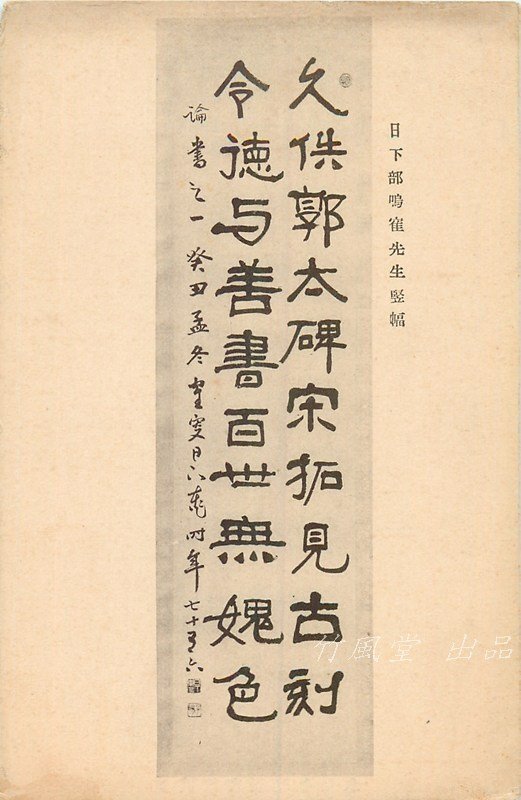 日下部鳴寉先生竪幅
久佚郭太碑宋拓見古刻
令徳与善書百世無媿色
論書之一 癸丑孟冬寉叟日下東時年七十有六
竹風堂 出品